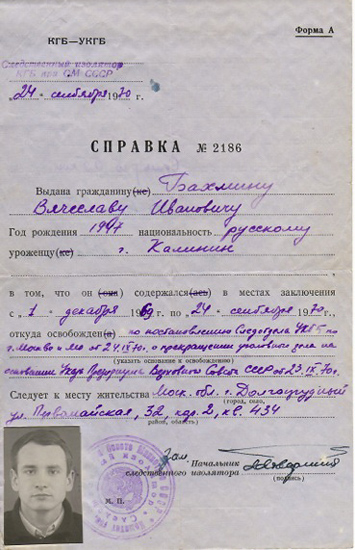 Форма А
КГБ—УКГБ
Следственный изолятор
КГБ при СМ СССР
„24" сентября 1970 г.
СПРАВКА № 2186
Выдана гражданину(ке) Бахмину
Вячеславу Ивановичу
Год рождения 1947 национальность русскому
уроженцу(ке) г. Калинин
в том, что он (она) содержался(ась) в местах заключения
с „1" декабря 1969 г. по „24" сентября 1970 г.
откуда освобожден(а) по постановлению Следотдела УКГБ по
г. Москве и МО от 24.IX.70г. о прекращении уголовного дела на
(указать основание к освобождению)
основании Указа Президиума Верховного Совета СССР от 23.IX.70г.
Следует к месту жительства Моск. обл. г. Долгопрудный
(город, село,
ул. Первомайская, 32, кор. 2, кв. 434
район, область)
Зам. Начальник
следственного изолятора
(подпись)
М. П.